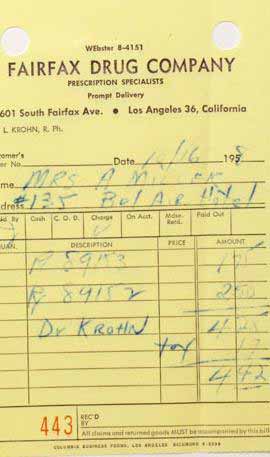 WEbster 8-4151
FAIRFAX DRUG COMPANY
PRESCRIPTION SPECIALISTS
Prompt Delivery
601 South Fairfax Ave. • Los Angeles 36, California
L. KROHN, R. Ph.
tomer's
er No. Date 12/16 195
ame MRS A
ddress #135 Bel Air Hotel
Cash C. O. D. Charge On Acct. Mdse. Retd. Paid Out
QUAN. DESCRIPTION PRICE AMOUNT
Dr KROHN
tax
4 42
443 REC'D BY
All claims and returned goods MUST be accompanied by this bill
COLUMBIA BUSINESS FORMS, LOS ANGELES